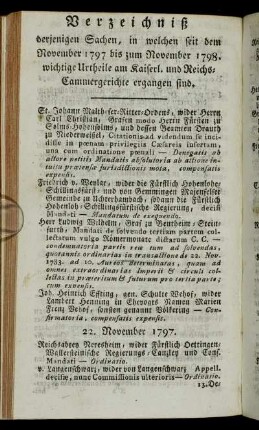 Verzeichniß
derjenigen Sachen, in welchen seit dem
November 1797 bis zum November 1798.
wichtige Urtheile am Kaiserl. und Reichs-
Cammergerichte ergangen sind.
St. Johann Maltheser-Ritter-Ordens, wider Herrn
Carl Christian, Grafen modo Herrn Fürsten zu
Solms-Hohensolms, und dessen Beamten
zu Niederweisel. Citationis ad videndum se inci-
disse in poenam privilegiis Caesareis insertam,
una cum ordinatione ponali — Denegatis ab
actore petitis Mandatis absolutoria ab actione in-
tuitu praetensae jurisdictionis mota, compensatis
expensis.
Friedrich v. Wenlar, wider die Fürstlich Hohenlohe-
Schillingsfürst- und von Gemmingen
Gemeinde zu sodann die Fürstlich
Hohenloh-Schillingsfürstische Regierung, decisi
Mandati — Mandatum de exequendo.
Herr Ludwig Wilhelm, Graf zu Bentheim-Stein-
furth, Mandati de solvendo tertiam partem col-
lectarum vulgo Römermonate dictarum C. C. —
condemnatoria partis reae tum ad solvendas,
quotannis ordinarias in transactione de 22. Nov.
1783. ad 10. Aureos determinatas, quam ad
omnes extraordinarias Imperii & circuli col-
lectas in praeteritum & futurum pro tertia parte;
cum expensis.
Joh. Heinrich Effting, gen. Schulte Wehof, wider
Lambert Henning in Ehevogts Namen Marien
Franz Wehof, sonsten genannt Böltering — Con-
firmatoria, compensatis expensis.
22. November 1797.
Reichsabtey Neresheim, wider Fürstlich Oettingen-
Wallersteinische Regierungs-Canzley und Cons.
Mandati — Ordinatio.
v. Langenschwarz, wider von Langenschwarz Appell.
decisae, nunc Commissionis ulterioris — Ordinatio.
13. De-